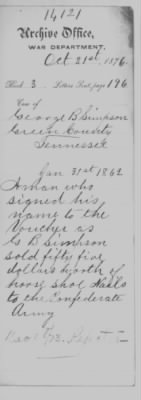 14121
Archive Office,
WAR DEPARTMENT,
Oct 21st, 1876.
Book 3. Letters Rec'd, page 196
Case of
George B Simpson
Green County
Tennessee
Jan 31st 1862
A man who
signed his
name to the
Voucher as
G B Simpson
sold fifty five
dollars worth of
horse shoe Nails
to the Confederate
Army